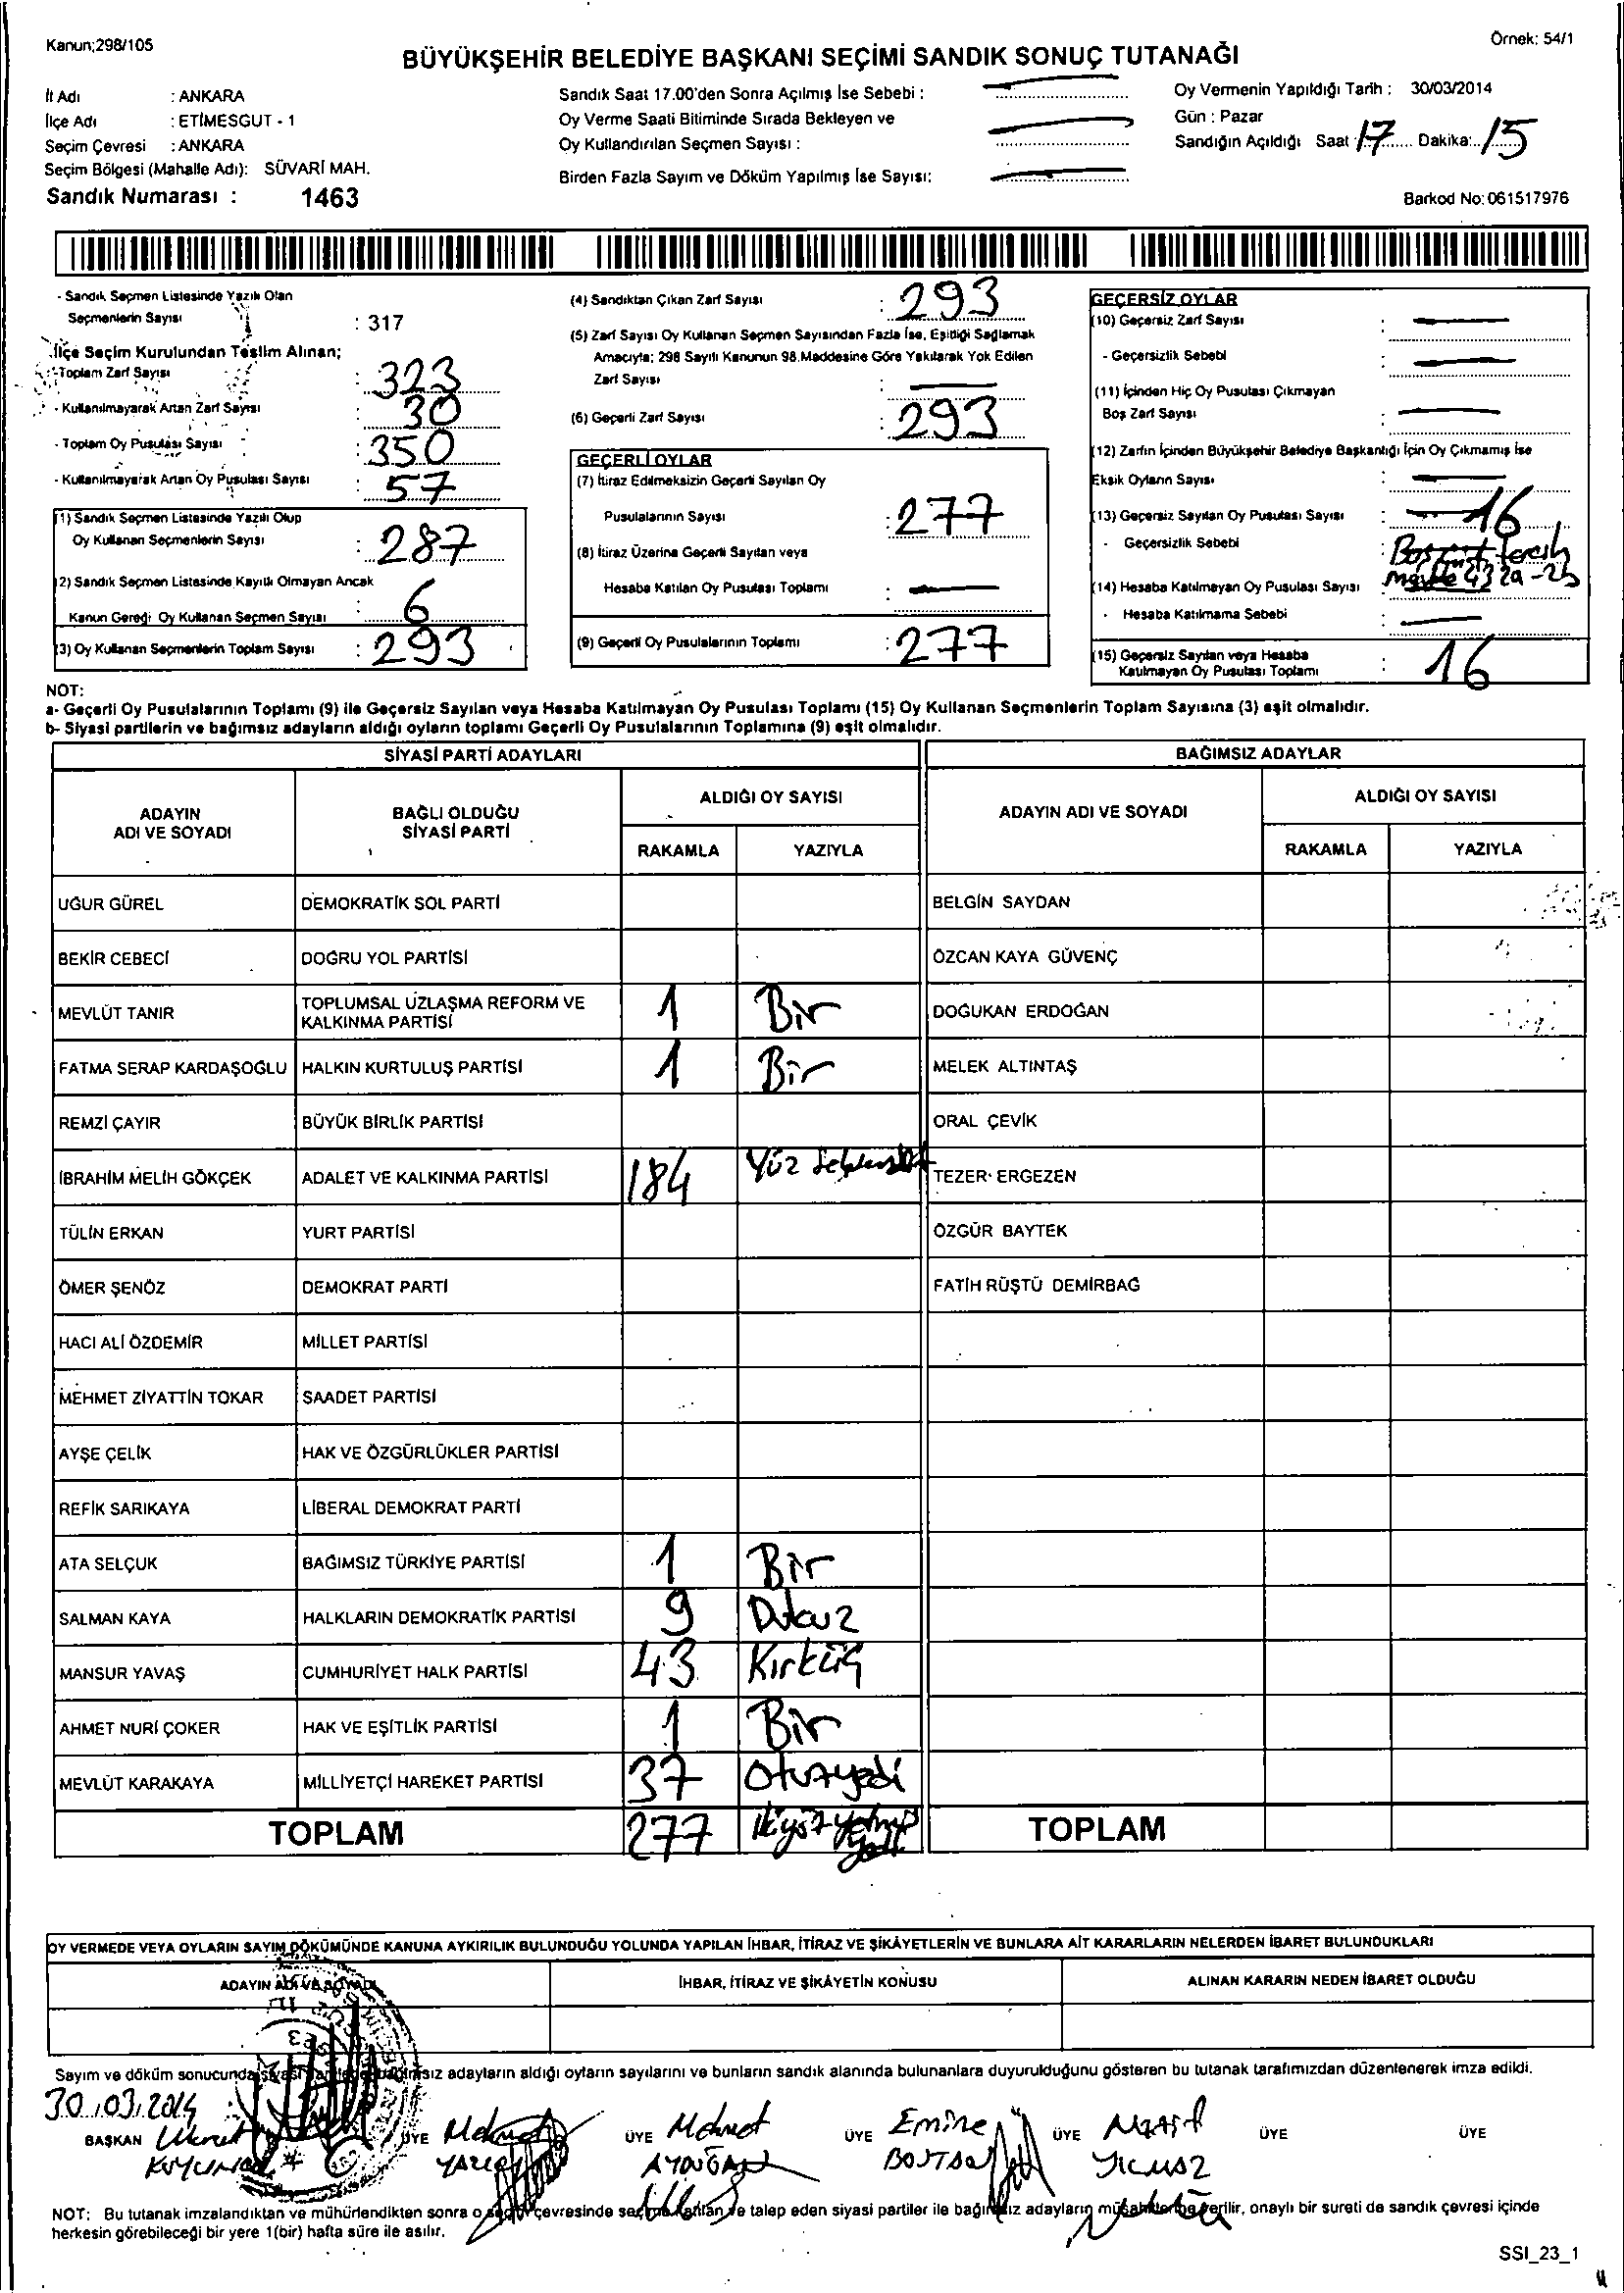 Kanun;298/105
Örnek: 54/1
BÜYÜKŞEHİR BELEDİYE BAŞKANI SEÇİMİ SANDIK SONUÇ TUTANAĞI
İl Adı : ANKARA
İlçe Adı : ETİMESGUT - 1
Seçim Çevresi : ANKARA
Seçim Bölgesi (Mahalle Adı): SÜVARİ MAH.
Sandık Numarası : 1463
Sandık Saat 17.00'den Sonra Açılmış İse Sebebi :
Oy Verme Saati Bitiminde Sırada Bekleyen ve
Oy Kullandırılan Seçmen Sayısı :
Birden Fazla Sayım ve Döküm Yapılmış İse Sayısı:
Oy Vermenin Yapıldığı Tarih : 30/03/2014
Gün : Pazar
Sandığın Açıldığı Saat : 17 Dakika: 15
Barkod No: 061517976
- Sandık Seçmen Listesinde Yazılı Olan
Seçmenlerin Sayısı : 317
İlçe Seçim Kurulundan Teslim Alınan;
- Toplam Zarf Sayısı : 323
- Kullanılmayarak Artan Zarf Sayısı : 30
- Toplam Oy Pusulası Sayısı : 350
- Kullanılmayarak Artan Oy Pusulası Sayısı : 57
(1) Sandık Seçmen Listesinde Yazılı Olup
Oy Kullanan Seçmenlerin Sayısı : 287
(2) Sandık Seçmen Listesinde Kayıtlı Olmayan Ancak
Kanun Gereği Oy Kullanan Seçmen Sayısı : 6
(3) Oy Kullanan Seçmenlerin Toplam Sayısı : 293
(4) Sandıktan Çıkan Zarf Sayısı : 293
(5) Zarf Sayısı Oy Kullanan Seçmen Sayısından Fazla İse, Eşitliği Sağlamak
Amacıyla; 298 Sayılı Kanunun 98.Maddesine Göre Yakılarak Yok Edilen
Zarf Sayısı :
(6) Geçerli Zarf Sayısı : 293
GEÇERLİ OYLAR
(7) İtiraz Edilmeksizin Geçerli Sayılan Oy
Pusulalarının Sayısı : 277
(8) İtiraz Üzerine Geçerli Sayılan veya
Hesaba Katılan Oy Pusulası Toplamı :
(9) Geçerli Oy Pusulalarının Toplamı : 277
GEÇERSİZ OYLAR
(10) Geçersiz Zarf Sayısı :
- Geçersizlik Sebebi :
(11) İçinden Hiç Oy Pusulası Çıkmayan
Boş Zarf Sayısı :
(12) Zarfın İçinden Büyükşehir Belediye Başkanlığı İçin Oy Çıkmamış İse
Eksik Oyların Sayısı :
(13) Geçersiz Sayılan Oy Pusulası Sayısı : 16
- Geçersizlik Sebebi :
(14) Hesaba Katılmayan Oy Pusulası Sayısı :
- Hesaba Katılmama Sebebi :
(15) Geçersiz Sayılan veya Hesaba
Katılmayan Oy Pusulası Toplamı : 16
NOT:
a- Geçerli Oy Pusulalarının Toplamı (9) ile Geçersiz Sayılan veya Hesaba Katılmayan Oy Pusulası Toplamı (15) Oy Kullanan Seçmenlerin Toplam Sayısına (3) eşit olmalıdır.
b- Siyasi partilerin ve bağımsız adayların aldığı oyların toplamı Geçerli Oy Pusulalarının Toplamına (9) eşit olmalıdır.
SİYASİ PARTİ ADAYLARI
BAĞIMSIZ ADAYLAR
ADAYIN ADI VE SOYADI
BAĞLI OLDUĞU SİYASİ PARTİ
ALDIĞI OY SAYISI
RAKAMLA YAZIYLA
ADAYIN ADI VE SOYADI
ALDIĞI OY SAYISI
RAKAMLA YAZIYLA
UĞUR GÜREL DEMOKRATİK SOL PARTİ BELGİN SAYDAN
BEKİR CEBECİ DOĞRU YOL PARTİSİ ÖZCAN KAYA GÜVENÇ
MEVLÜT TANIR TOPLUMSAL UZLAŞMA REFORM VE KALKINMA PARTİSİ 1 Bir DOĞUKAN ERDOĞAN
FATMA SERAP KARDAŞOĞLU HALKIN KURTULUŞ PARTİSİ 1 Bir MELEK ALTINTAŞ
REMZİ ÇAYIR BÜYÜK BİRLİK PARTİSİ ORAL ÇEVİK
İBRAHİM MELİH GÖKÇEK ADALET VE KALKINMA PARTİSİ 184 Yüz seksendört TEZER ERGEZEN
TÜLİN ERKAN YURT PARTİSİ ÖZGÜR BAYTEK
ÖMER ŞENÖZ DEMOKRAT PARTİ FATİH RÜŞTÜ DEMİRBAĞ
HACI ALİ ÖZDEMİR MİLLET PARTİSİ
MEHMET ZİYATTİN TOKAR SAADET PARTİSİ
AYŞE ÇELİK HAK VE ÖZGÜRLÜKLER PARTİSİ
REFİK SARIKAYA LİBERAL DEMOKRAT PARTİ
ATA SELÇUK BAĞIMSIZ TÜRKİYE PARTİSİ 1 Bir
SALMAN KAYA HALKLARIN DEMOKRATİK PARTİSİ 9 Dokuz
MANSUR YAVAŞ CUMHURİYET HALK PARTİSİ 43 Kırküç
AHMET NURİ ÇOKER HAK VE EŞİTLİK PARTİSİ 1 Bir
MEVLÜT KARAKAYA MİLLİYETÇİ HAREKET PARTİSİ 37 Otuzyedi
TOPLAM 277 İkiyüz yetmiş yedi TOPLAM
OY VERMEDE VEYA OYLARIN SAYIM DÖKÜMÜNDE KANUNA AYKIRILIK BULUNDUĞU YOLUNDA YAPILAN İHBAR, İTİRAZ VE ŞİKÂYETLERİN VE BUNLARA AİT KARARLARIN NELERDEN İBARET BULUNDUKLARI
ADAYIN ADI VE SOYADI İHBAR, İTİRAZ VE ŞİKÂYETİN KONUSU ALINAN KARARIN NEDEN İBARET OLDUĞU
Sayım ve döküm sonucunda siyasi bağımsız adayların aldığı oyların sayılarını ve bunların sandık alanında bulunanlara duyurulduğunu gösteren bu tutanak tarafımızdan düzenlenerek imza edildi.
30.03.2014
BAŞKAN ÜYE Mehmet ÜYE Mehmet ÜYE Emine ÜYE ÜYE ÜYE
YILMAZ
NOT: Bu tutanak imzalandıktan ve mühürlendikten sonra o seçim çevresinde seçime katılan ve talep eden siyasi partiler ile bağımsız adayların müşahitlerine verilir, onaylı bir sureti de sandık çevresi içinde
herkesin görebileceği bir yere 1(bir) hafta süre ile asılır.
SSI_23_1